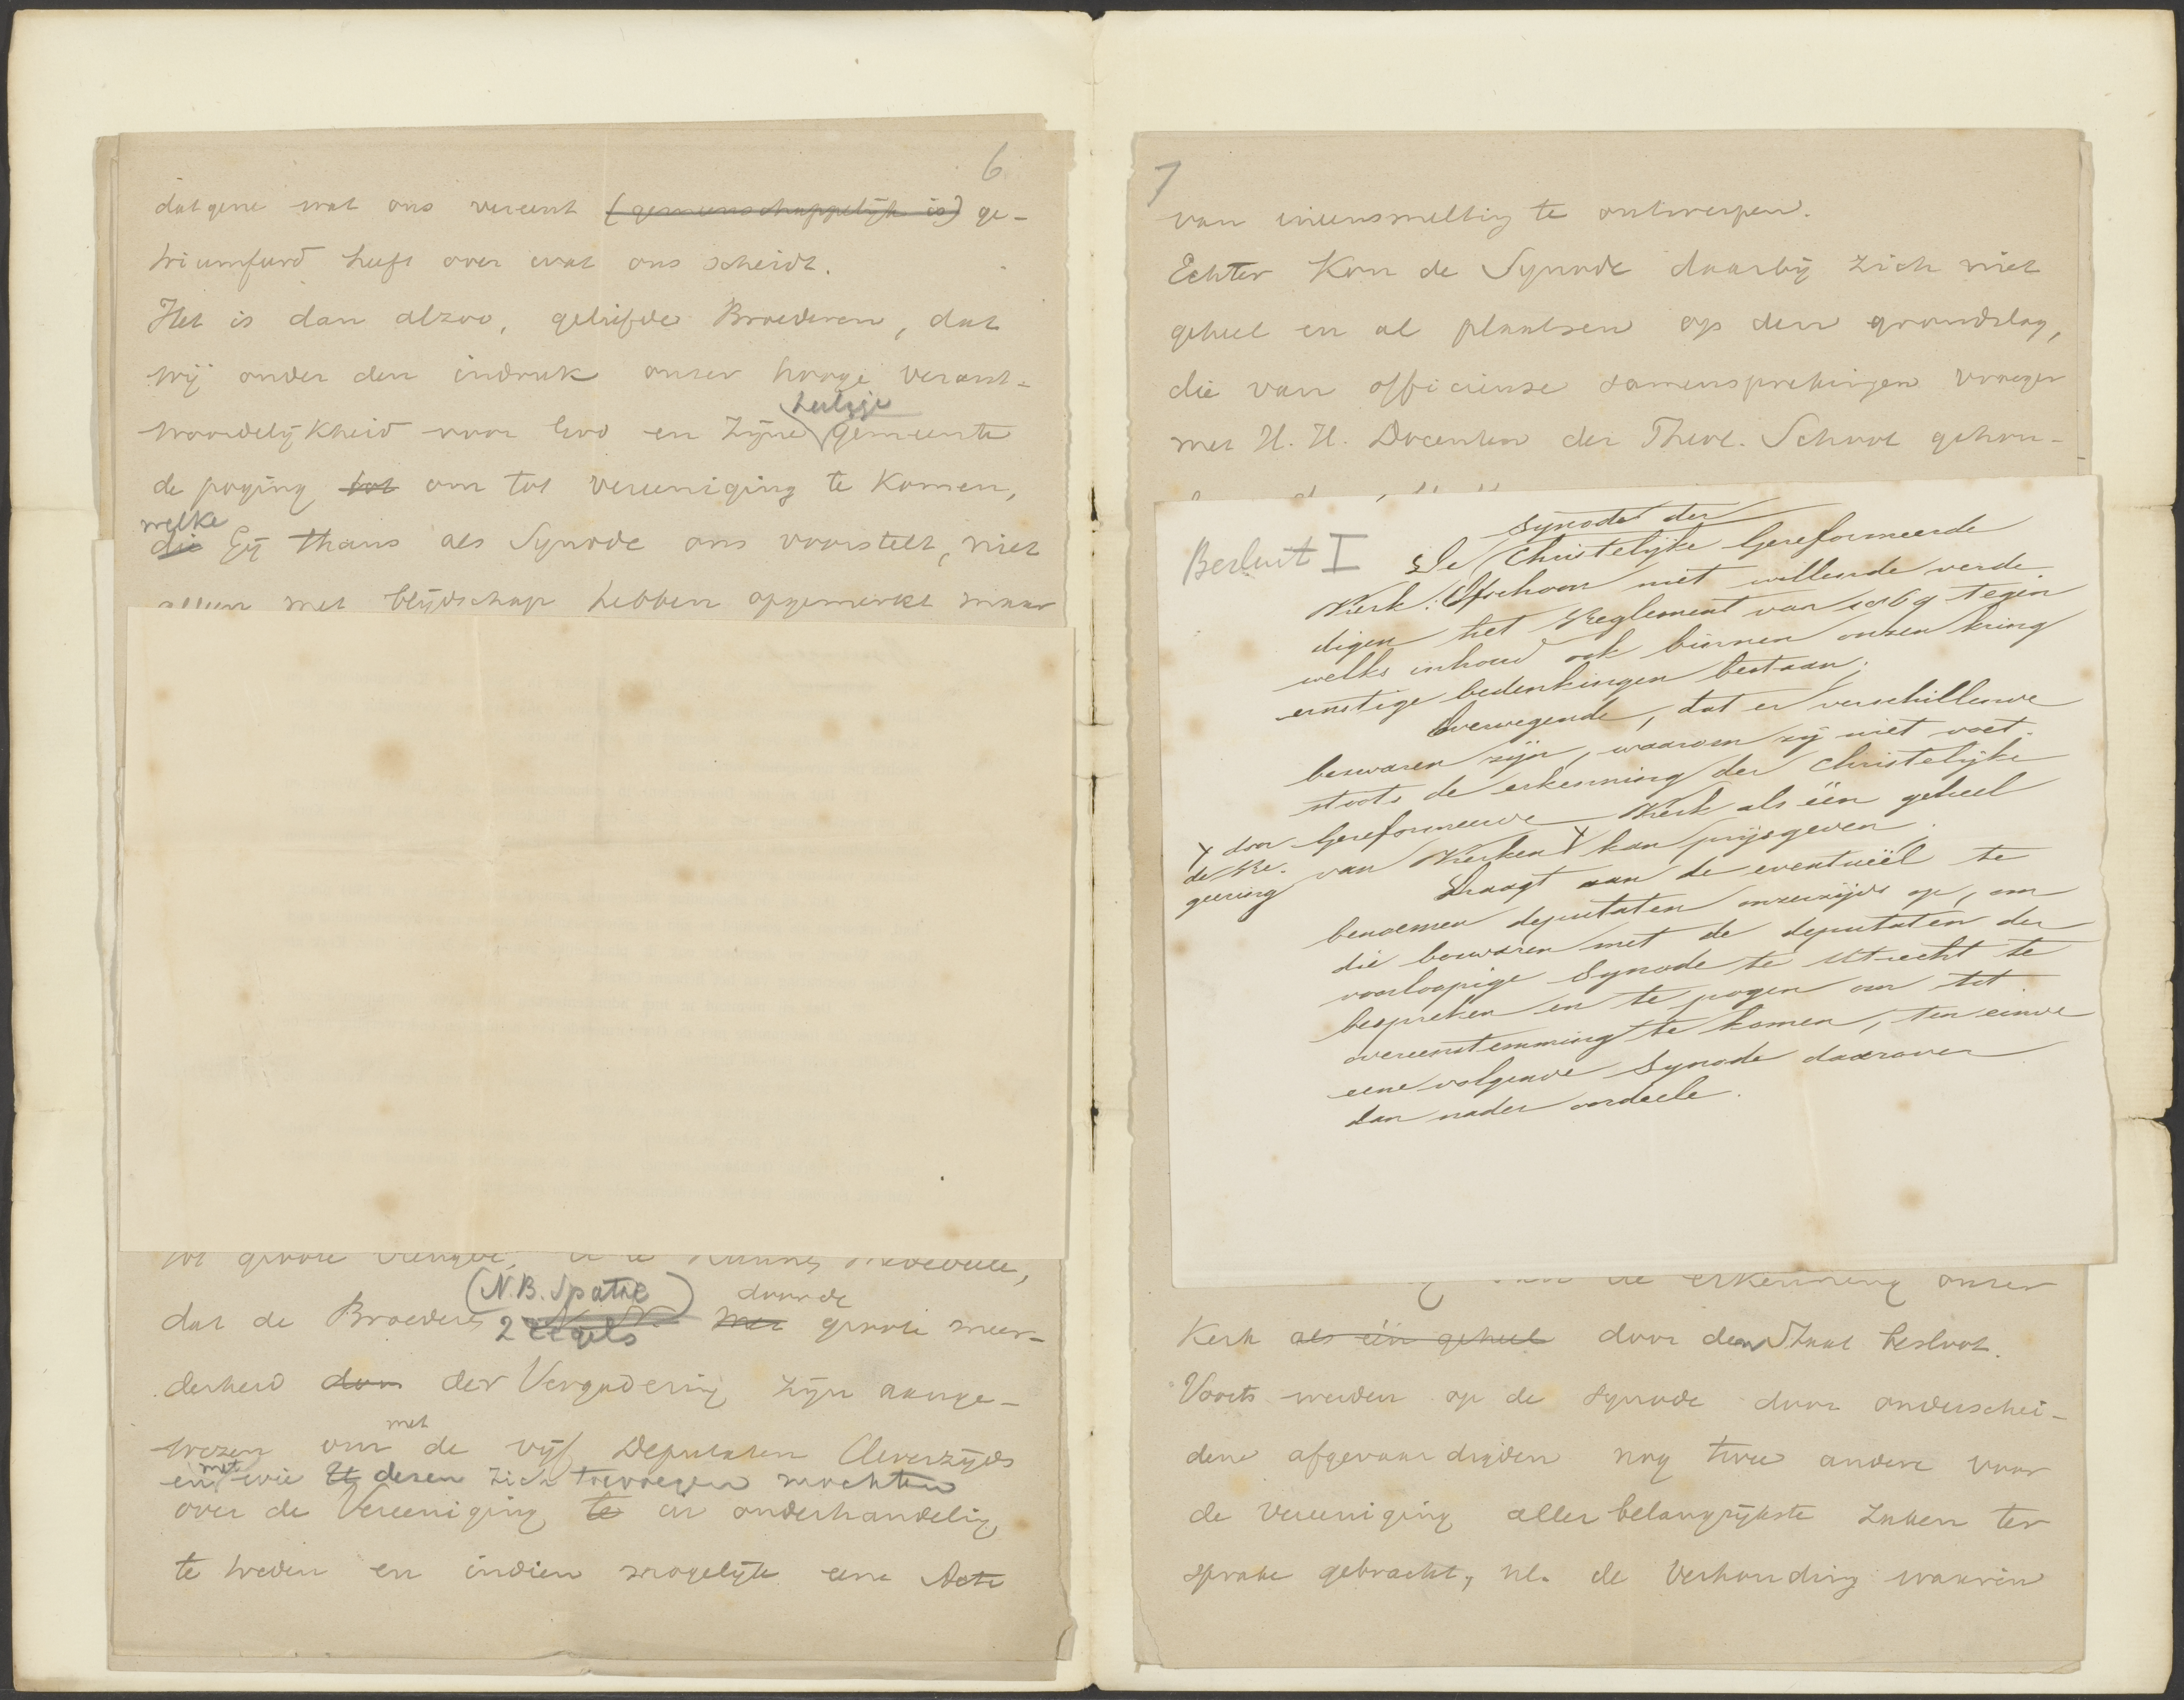 6
datgene wat ons vereent (gemeenschappelijk is) ge-
triumfeerd heeft over wat ons scheidt.
Het is dan alzoo, geliefde Broederen, dat
wij onder den indruk onzer hooge verant-
heilige
woordelijkheid voor God en zijne gemeente
de poging tot om tot vereeniging te komen,
welke
die Gij thans als Synode ons voorstelt, niet
alleen met blijdschap hebben opgemerkt maar
tot groote vreugde,
(N.B. Spatie
2 regels)
doorde
dat de Broeders N. N. met groote meer-
derheid door der Vergadering zijn aange-
met
wezen om de vijf Deputaten Uwerzijds
en met wie U dezen zich toevoegen mochten
over de Vereeniging te in onderhandeling
te treden en indien mogelijk eene Acte
7
van ineensmelting te ontwerpen.
Echter kon de Synode daarbij zich niet
geheel en al plaatsen op den grondslag,
die van officieuse samensprekingen vroeger
met H. H. Docenten der Theol. School gehou-
Besluit I
Synode der
De Christelijke Gereformeerde
Kerk. Ofschoon niet willende verde
digen het Reglement van 1869 tegen
welks inhoud ook binnen onzen kring
ernstige bedenkingen bestaan;
Overwegende, dat er verschillende
bezwaren zijn, waarom zij niet voet-
stoots de erkenning der Christelijke
Gereformeerde Kerk als één geheel
van Kerken kan prijsgeven.
door
de Re-
geering
Draagt aan de eventuëel te
benoemen deputaten onzerzijds op, om
die bezwaren met de deputaten der
voorloopige Synode te Utrecht te
bespreken en te pogen om tot
overeenstemming te komen, ten einde
eene volgende Synode daarover
dan nader oordeele.
de erkenning onzer
Kerk als één geheel door den Staat besloot.
Voorts werden op de Synode door onderschei-
dene afgevaardigden nog twee andere voor
de vereeniging allerbelangrijkste zaken ter
sprake gebracht, nl. de Verhouding waarin